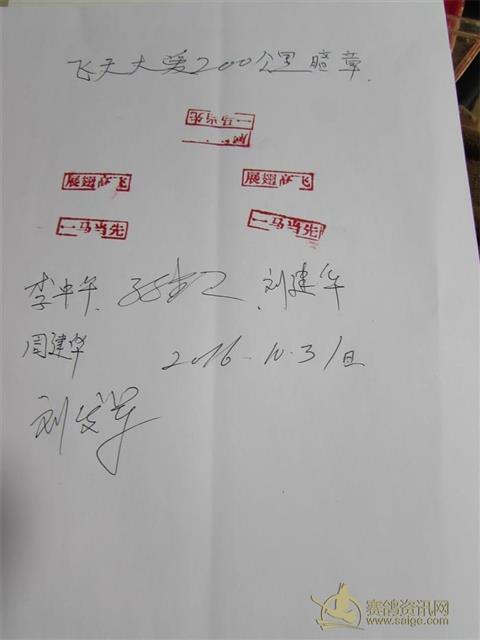 飞天大爱200公里暗章.
一马当先
展翅高飞
展翅高飞
一马当先
一马当先
李中午. 刘建华
周建华 2016-10.31日
刘发军
赛鸽资讯网
www.saige.com